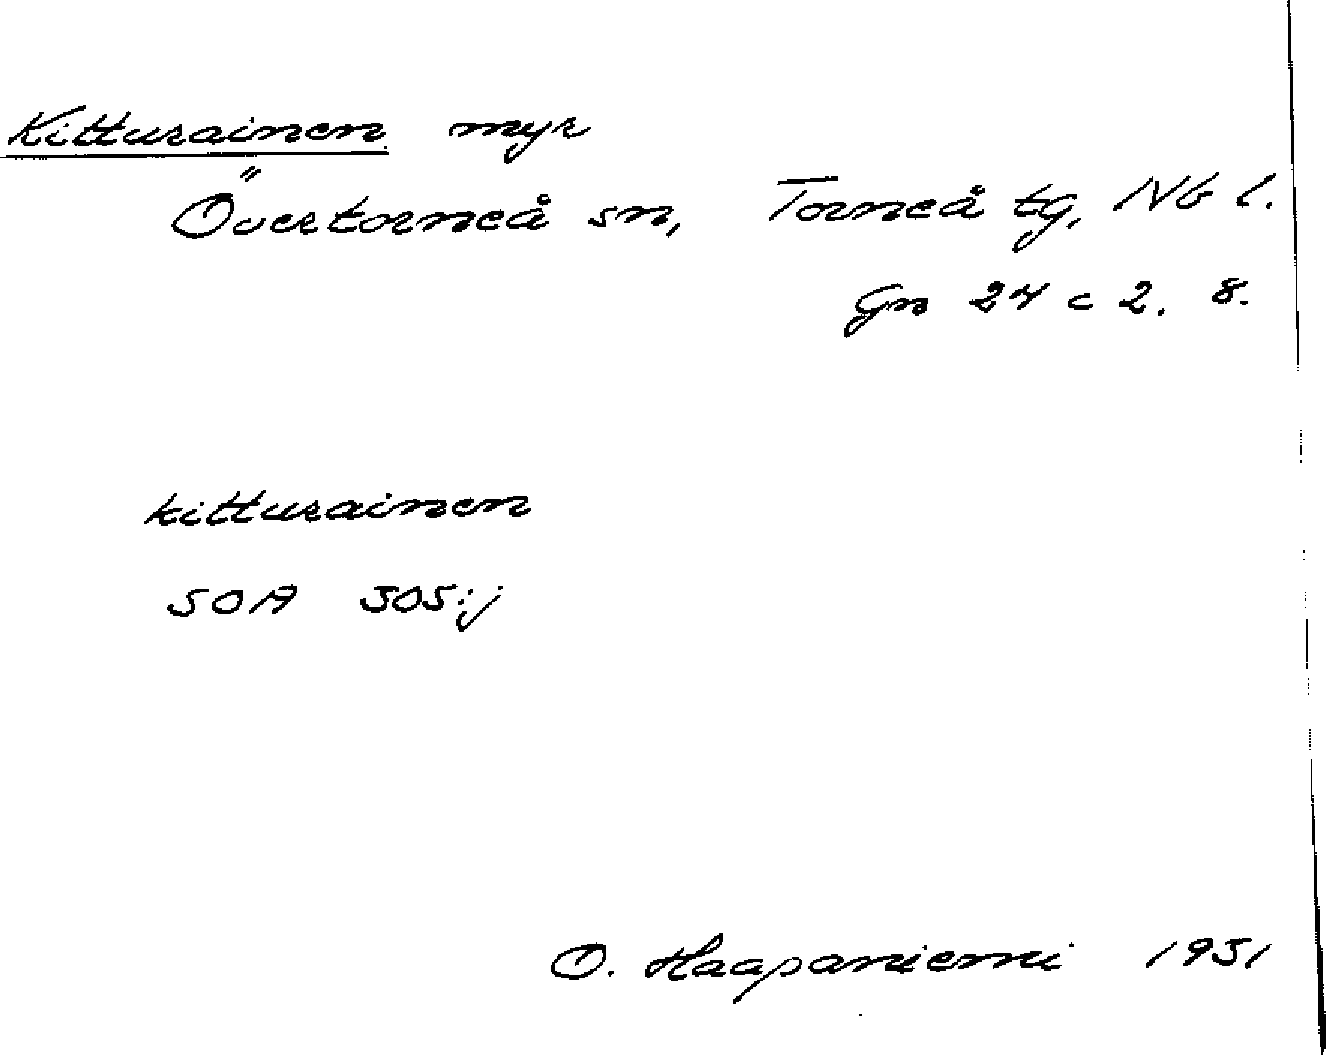 Kitturainen myr
Övertorneå sn, Torneå tg, Nb l.
Gn 24 c 2. 8.
kitturainen
SOA 305:j
O. Haapaniemi 1951